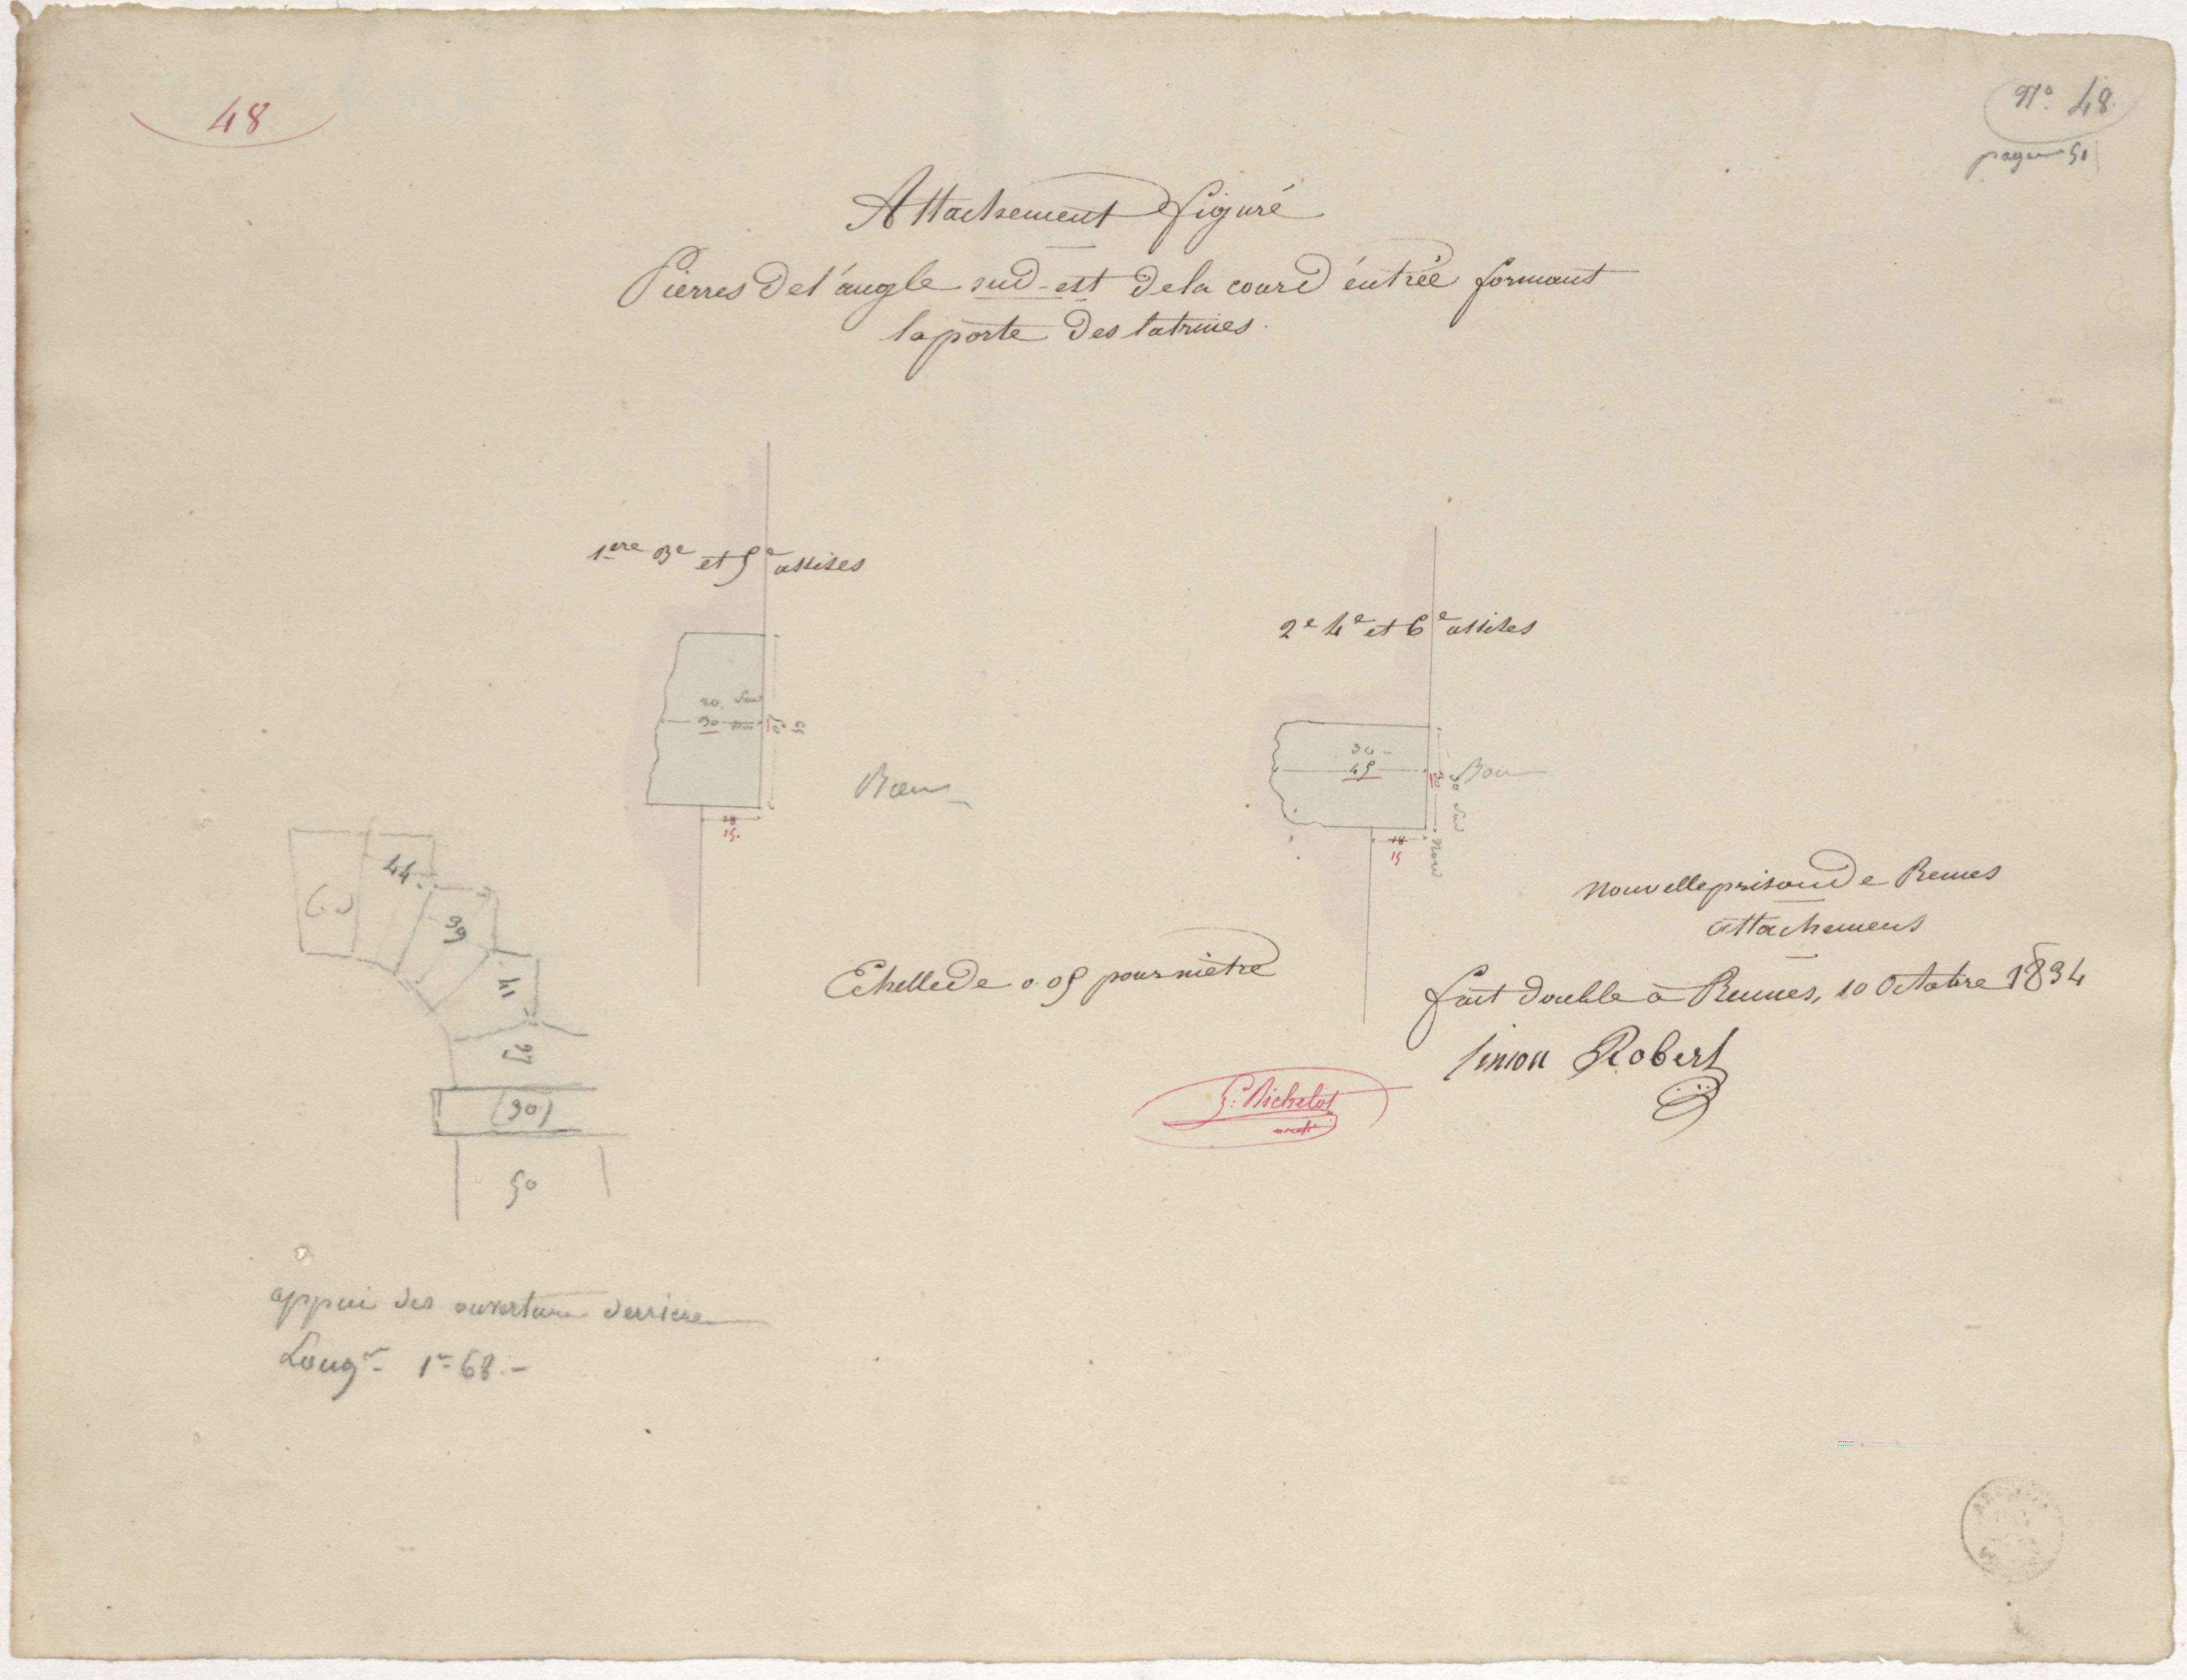 48
N° 48
page 51
Attachement figuré
Pierres de l'angle sud-est de la cour d'éntrée formant
la porte des latrines.
1ere 3e et 5e assises
2e 4e et 6e assises
20. Sud
30
15.
30
45
30
30 Sud
Nord
18
15
Bon
44
39
41
27
(30)
50
Nouvelle prison de Rennes
attachemens
Echelle de 0.05 pour mètre
fait double à Rennes, 10 Octobre 1834
Simon Robert
G. Richelot
archte
appui des ouverture derriere
Longr 1m 68.-